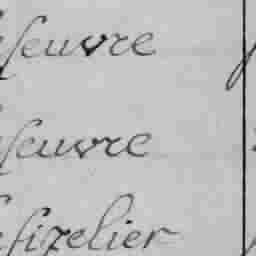 feuvre
feuvre
fizelier